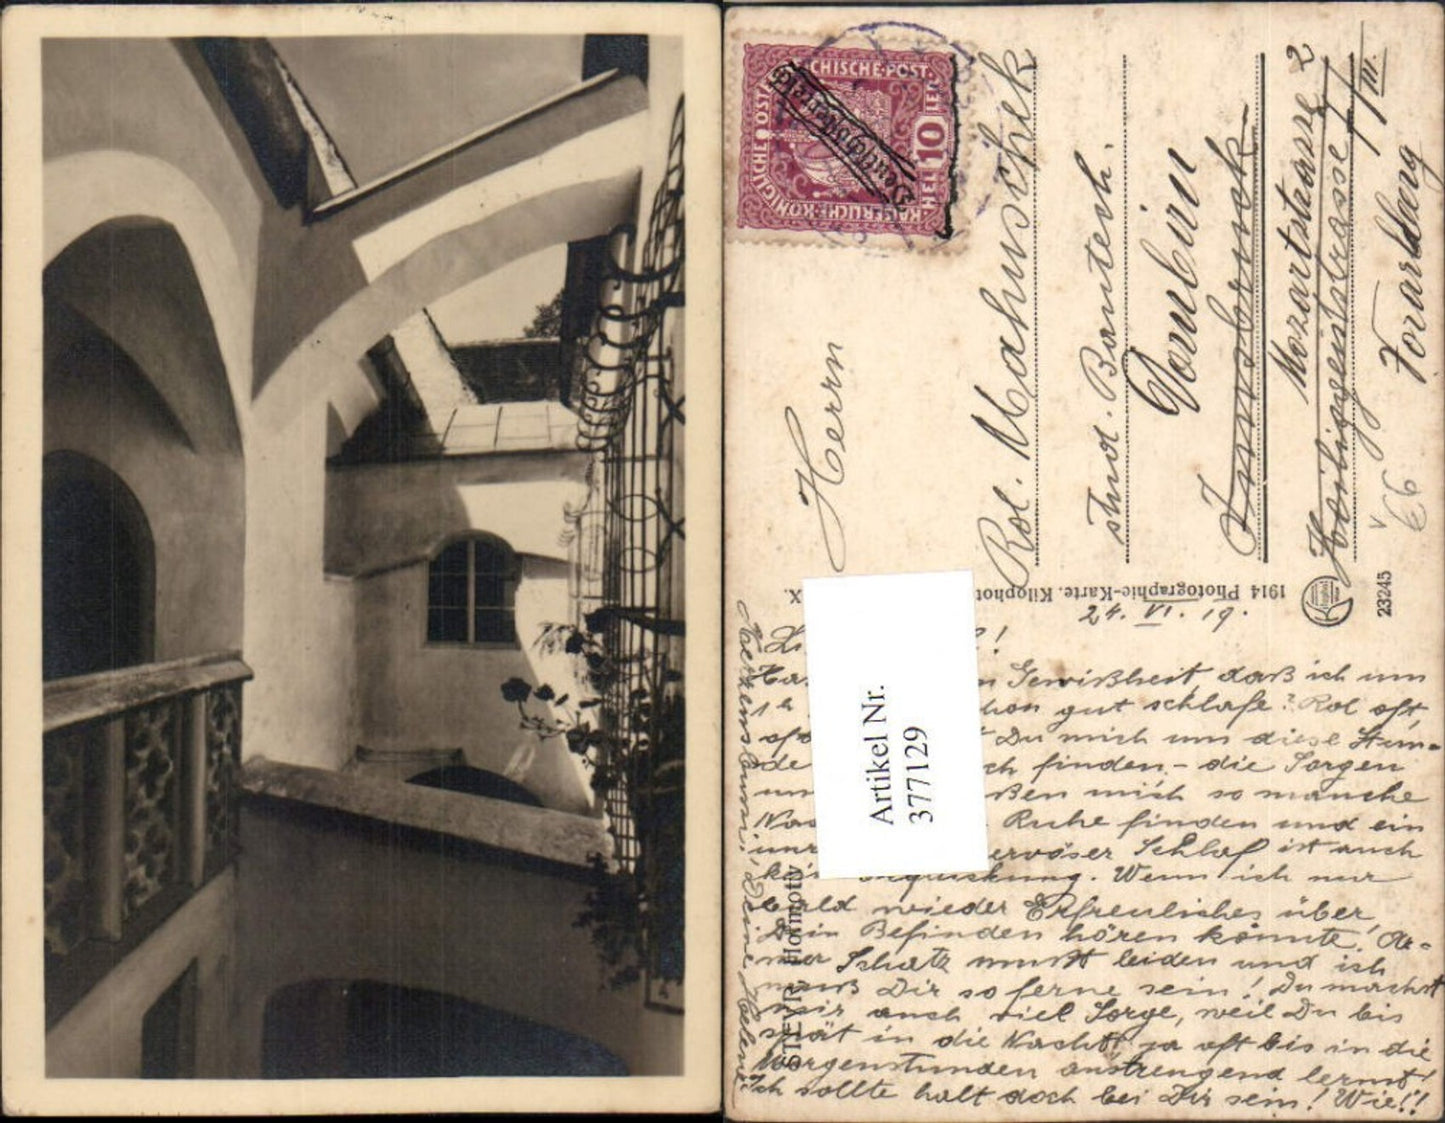 KAISERLICHE·KÖNIGLICHE ÖSTERREICHISCHE·POST
HEL 10 LER
Deutschösterreich
Herrn
Rol. Mahnschek
stud. Bautech.
Dornbirn
Innsbruck
Mozartstrasse 2
Heiliggeiststrasse 7/III.
Vorarlberg
1914 Photographie-Karte, Kilophot
X.
23245
24. VI. 19.
Artikel Nr.
377129
STEYR Hofmotiv
Gewißheit daß ich um
1h schon gut schlafe? Rol oft,
Du mich um diese Stun-
de finden - die Sorgen
um mich so manche
Ruhe finden und ein
nervöser Schlaf ist auch
keine Erquickung. Wenn ich nur
bald wieder Erfreuliches über
Dein Befinden hören könnte! Ar-
mer Schatz mußt leiden und ich
muß Dir so ferne sein! Du machst
mir auch viel Sorge, weil Du bis
spät in die Nacht ja oft bis in die
Morgenstunden anstrengend lernst!
Ich sollte halt doch bei Dir sein! Wie!!
Herzensbumi! Deine Heleni